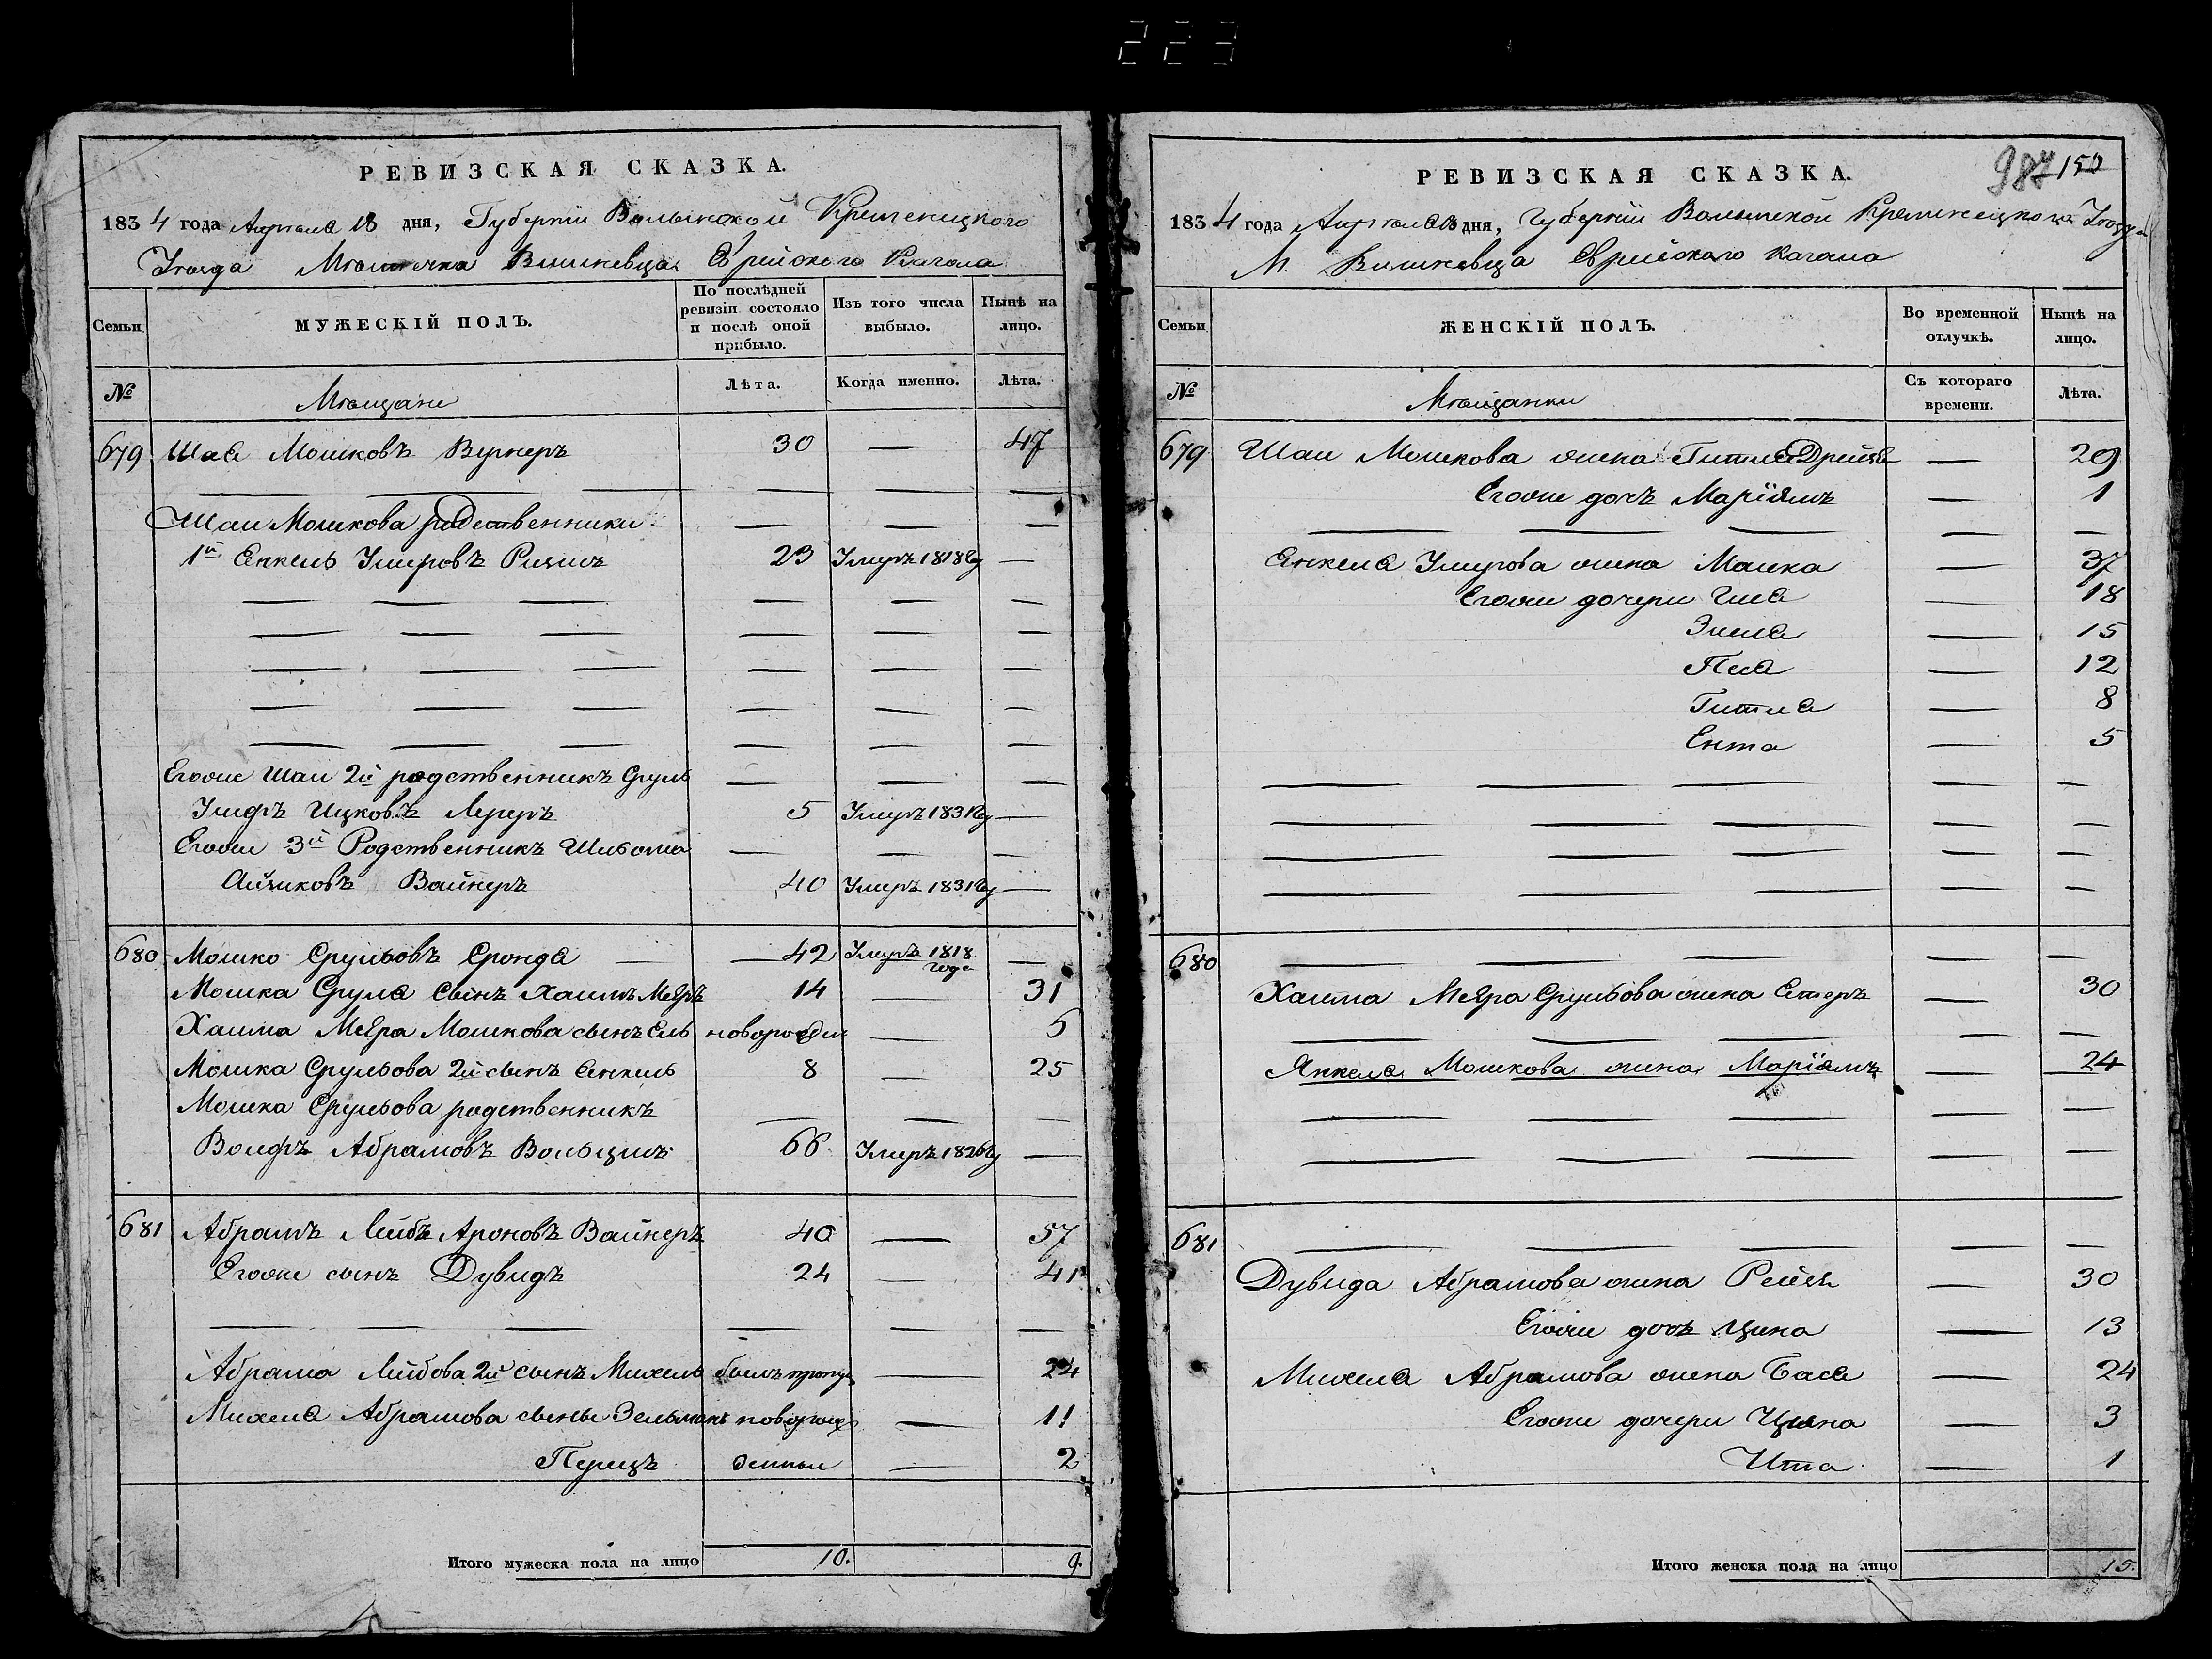 223
РЕВИЗСКАЯ СКАЗКА.
1834 года Апреля 18 дня, Губернии Волынской Кременецкого
Уезда Местечка Вишневца Еврейского Кагала
Семьи
МУЖЕСКІЙ ПОЛЪ.
По послѣдней ревизіи состояло и послѣ оной прибыло.
Изъ того числа выбыло.
Нынѣ на лицо.
№
Мещане
Лѣта.
Когда именно.
Лѣта.
679 Шая Мошковъ Вернеръ 30 — 47
Шаи Мошкова родственники — — —
1й Енкель Умеровъ 23 Умеръ 1818 —
Егоже Шаи 2й родственникъ Сруль — — —
Ицковъ Лереръ 5 Умеръ 1831 —
Егоже 3й Родственникъ Шльома — — —
Айзиковъ Вайнеръ 40 Умеръ 1831 —
680 Мошко Срульовъ — 42 Умеръ 1818 года —
Мошка Сруля сынъ Хаимъ Мееръ 14 — 31
Хаима Меера Мошкова сынъ Ель новорожден — 5
Мошка Срульова 2й сынъ Енкель 8 — 25
Мошка Срульова родственникъ — — —
Вольфъ Абрамовъ 66 Умеръ 1826 —
681 Абрамъ Лейбъ Ароновъ Вайнеръ 40 — 57
Егоже сынъ Дувидъ 24 — 41
Абрама Лейбова 2й сынъ Михель былъ пропущ — 24
Михеля Абрамова сыны Зельманъ новорож — 11
Перецъ денные — 2
Итого мужеска пола на лицо 10. 9.
987 150
РЕВИЗСКАЯ СКАЗКА.
1834 года Апреля 18 дня, Губернии Волынской Кременецкого Уезда
М. Вишневца Еврейского Кагала
Семьи
ЖЕНСКІЙ ПОЛЪ.
Во временной отлучкѣ.
Нынѣ на лицо.
№
Мещанки
Съ котораго времени.
Лѣта.
679 Шаи Мошкова жена Гитля Дрейзя — 29
Егоже дочь Маріямъ — 1
Енкеля Умерова жена Малка — 37
Егоже дочери — 18
Зисля — 15
Песя — 12
Гитля — 8
Ента — 5
680
Хаима Меера Срульова жена Естеръ — 30
Янкеля Мошкова жена Маріямъ — 24
681
Дувида Абрамова жена Рейзя — 30
Егоже дочь Цына — 13
Михеля Абрамова жена Бася — 24
Егоже дочери Цына — 3
Ита — 1
Итого женска пола на лицо 15.